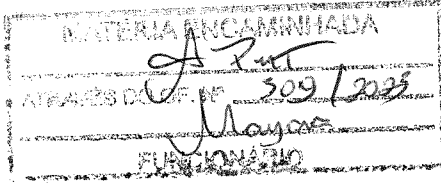 MATÉRIA ENCAMINHADA
A
ATRAVÉS DO OF. Nº 509 / 2023
Mayara
FUNCIONÁRIO